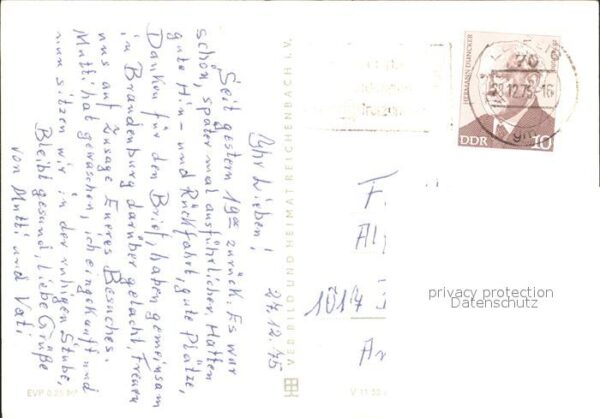 27.12.75
Ihr Lieben!
Seit gestern 19⁰⁰ zurück. Es war
schön, später mal ausführlicher. Hatten
gute Hin- und Rückfahrt, gute Plätze,
Danken für den Brief, haben gemeinsam
in Brandenburg darüber gelacht, Freuen
uns auf Zusage Eueres Besuches.
Mutti hat gewaschen, ich eingekauft und
nun sitzen wir in der ruhigen Stube,
Bleibt gesund, liebe Grüße
von Mutti und Vati
VEB BILD UND HEIMAT REICHENBACH i. V.
EVP 0,25
V 11 32
HERMANN DUNCKER
DDR 10
70
28.12.75-16
F
Al
1017
An
privacy protection
Datenschutz